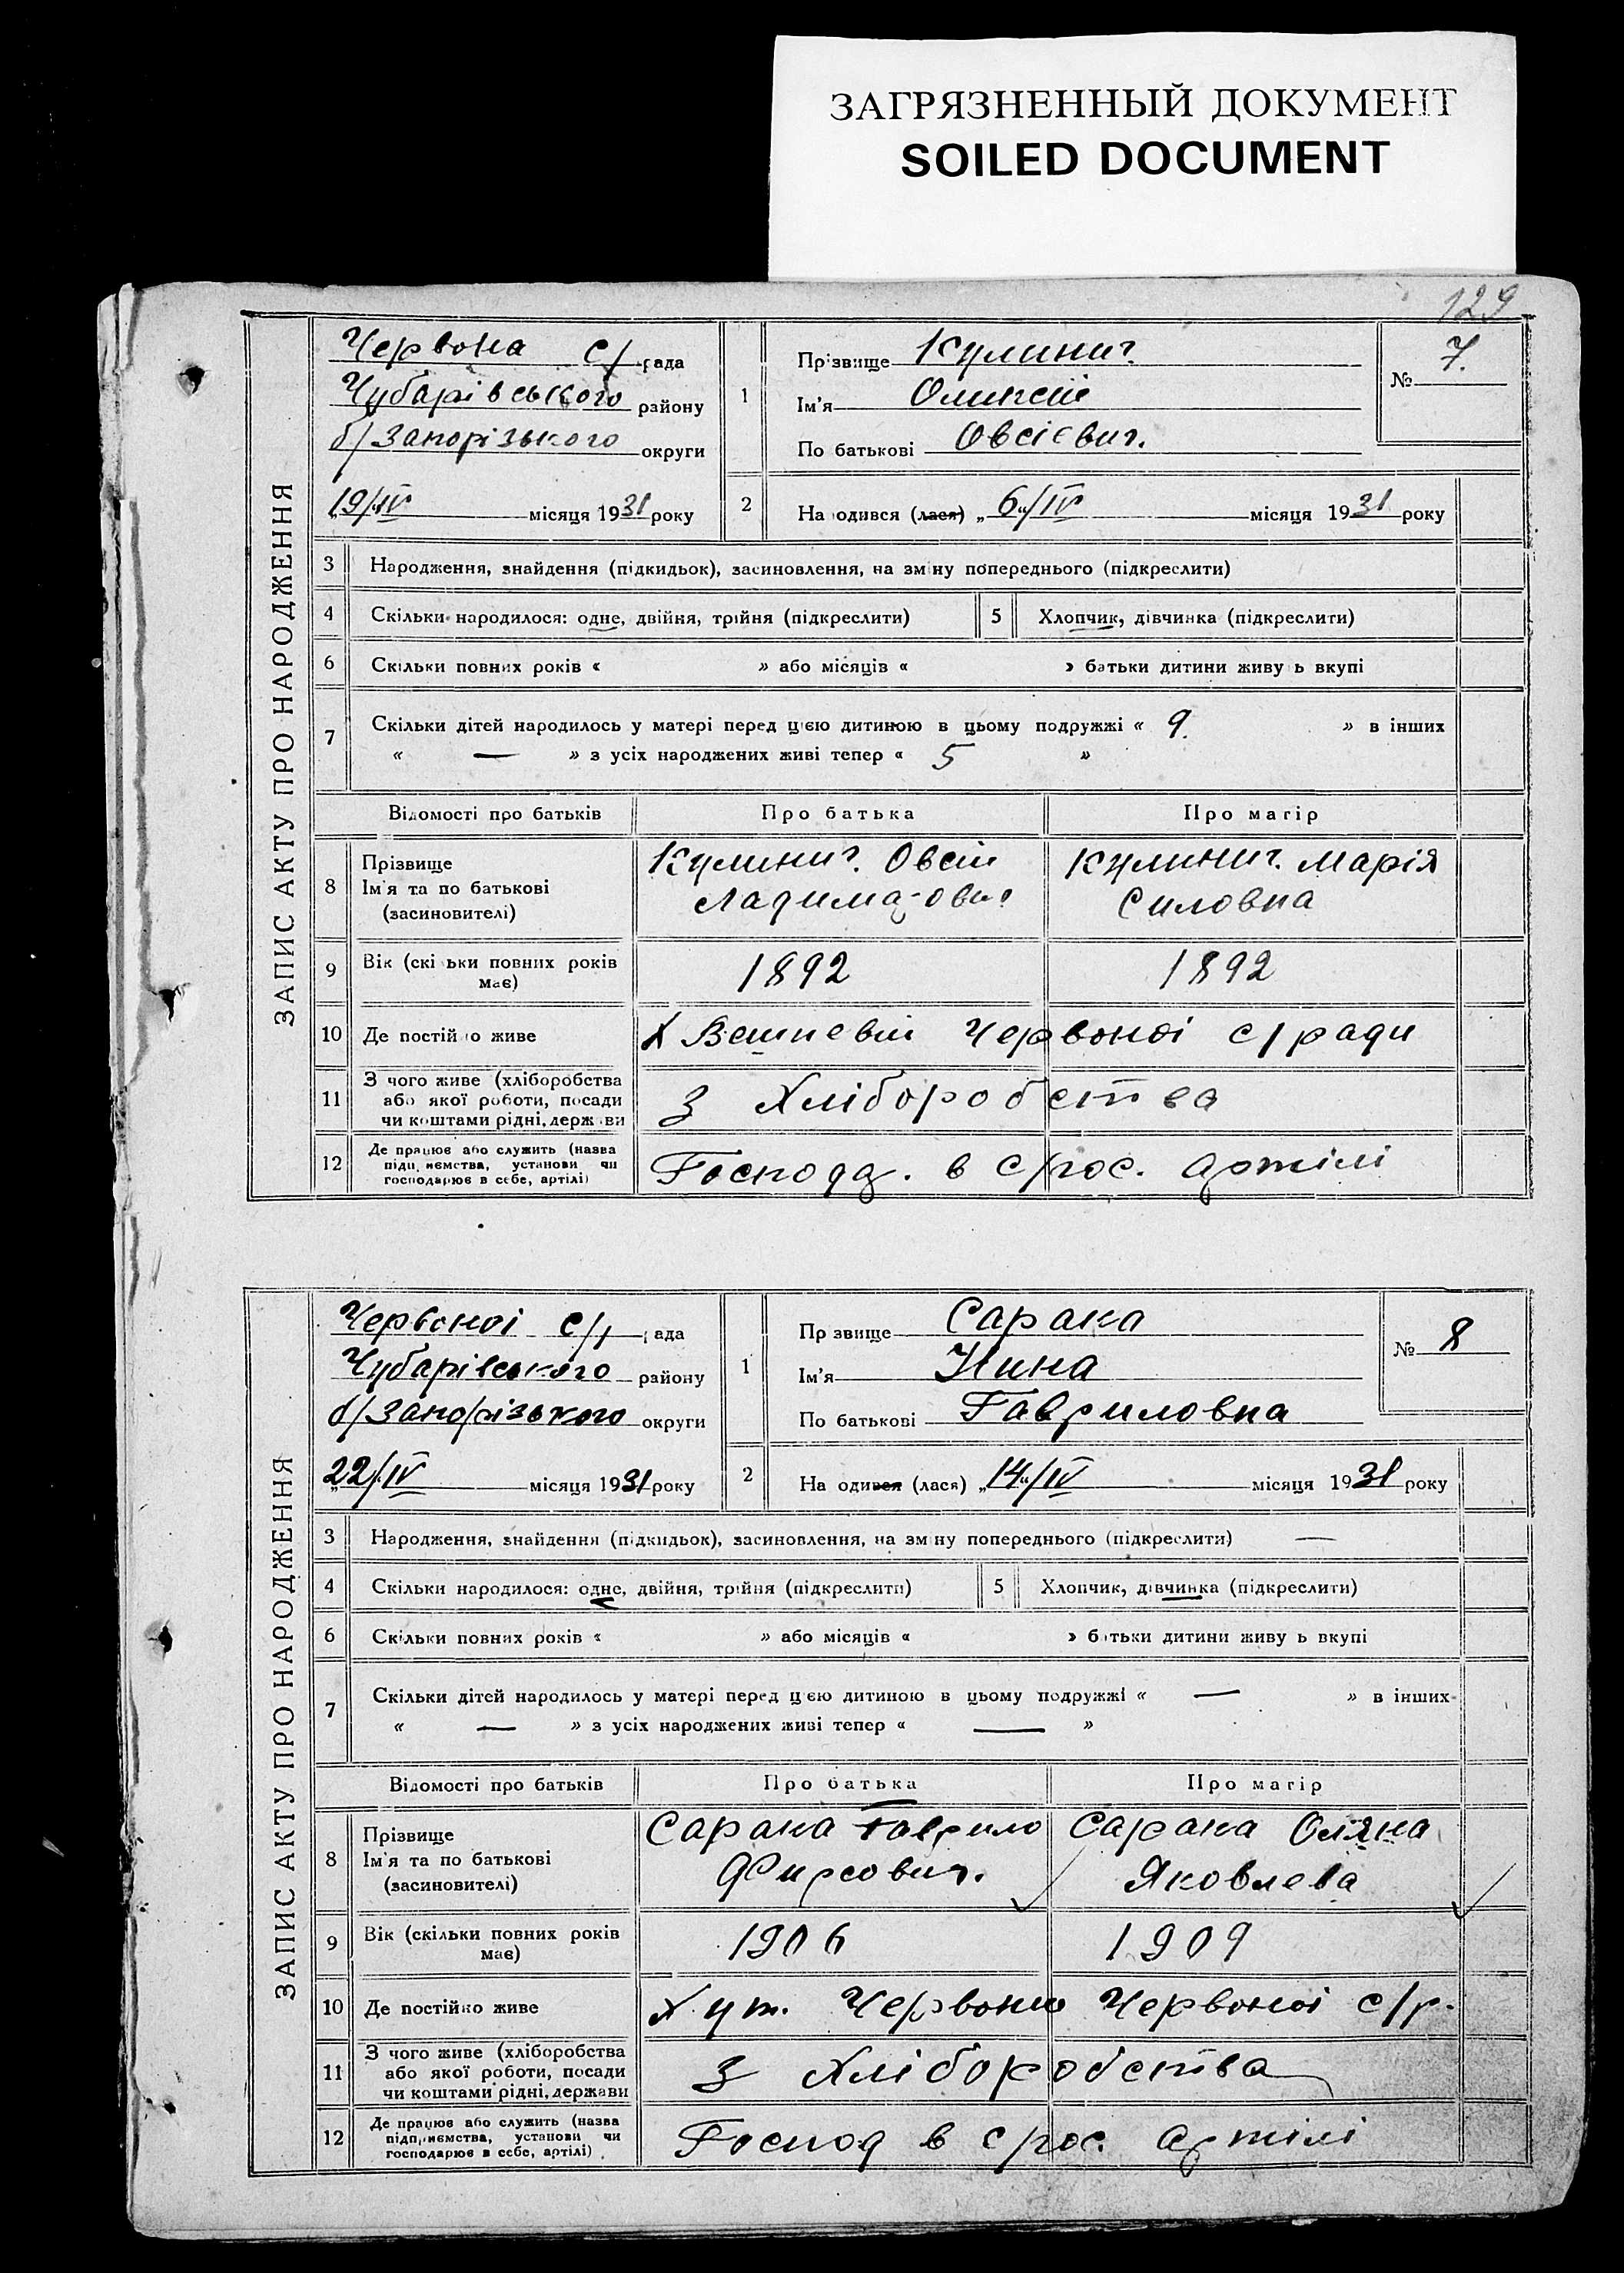 ЗАГРЯЗНЕННЫЙ ДОКУМЕНТ
SOILED DOCUMENT
129
ЗАПИС АКТУ ПРО НАРОДЖЕННЯ
Червона с/рада
Чубарівського району
б/Запорізького округи
„19/IV місяця 1931 року
1
Прізвище Кулинич.
Ім'я Олексій
По батькові Овсієвич.
№ 7.
2 На одився (лася) „6"/IV місяця 1931 року
3 Народження, знайдення (підкидьок), засиновлення, на зміну попереднього (підкреслити)
4 Скільки народилося: одне, двійня, трійня (підкреслити) 5 Хлопчик, дівчинка (підкреслити)
6 Скільки повних років « » або місяців « » батьки дитини живу ь вкупі
7 Скільки дітей народилось у матері перед цією дитиною в цьому подружжі « 9. » в інших
« — » з усіх народжених живі тепер « 5 »
Відомості про батьків Про батька Про матір
8 Прізвище Ім'я та по батькові (засиновителі)
Кулинич. Овсій
Кулинич. Марія
Силовна
9 Вік (скі ьки повних років має) 1892 1892
10 Де постій о живе Х Червоної с/ради
11 З чого живе (хліборобства або якої роботи, посади чи коштами рідні, держ ви
З Хліборобства
12 Де працює або служить (назва підп иємства, установи чи господарює в себе, артілі)
Господ. в с/гос. артілі
ЗАПИС АКТУ ПРО НАРОДЖЕННЯ
Червоної с/рада
Чубарівського району
б/Запорізького округи
„22/IV місяця 1931 року
1
Пр звище Сарана
Ім'я Нина
По батькові Гавриловна
№ 8
2 На одився (лася) „14"/IV місяця 1931 року
3 Народження, знайдення (підкидьок), засиновлення, на зміну попереднього (підкреслити) —
4 Скільки народилося: одне, двійня, трійня (підкреслити) 5 Хлопчик, дівчинка (підкреслити)
6 Скільки повних років « » або місяців « » батьки дитини живу ь вкупі
7 Скільки дітей народилось у матері перед цією дитиною в цьому подружжі « — » в інших
« — » з усіх народжених живі тепер « — »
Відомості про батьків Про батька Про матір
8 Прізвище Ім'я та по батькові (засиновителі)
Сарана Гаврило
Фирсович.
Сарана Оляна
Яковлева
9 Вік (скільки повних років має) 1906 1909
10 Де постійно живе Хут. Червоний Червоної с/р.
11 З чого живе (хліборобства або якої роботи, посади чи коштами рідні, держави
З Хліборобства
12 Де працює або служить (назва підприємства, установи чи господарює в себе, артілі)
Господ в с/гос. артілі